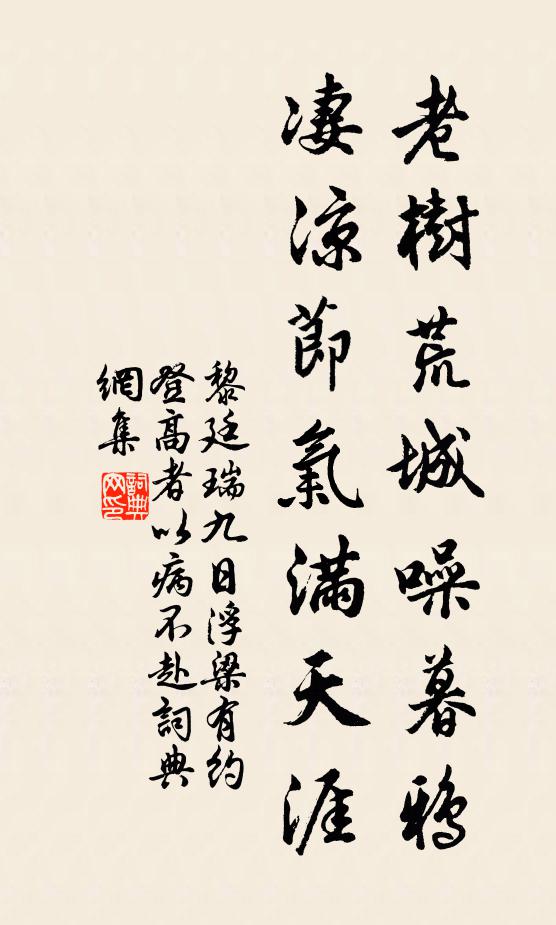 老樹荒城噪暮鴉
凄涼節氣滿天涯
黎廷瑞九日浮梁有約
登高者以病不赴詞典
網集
詞典
网印